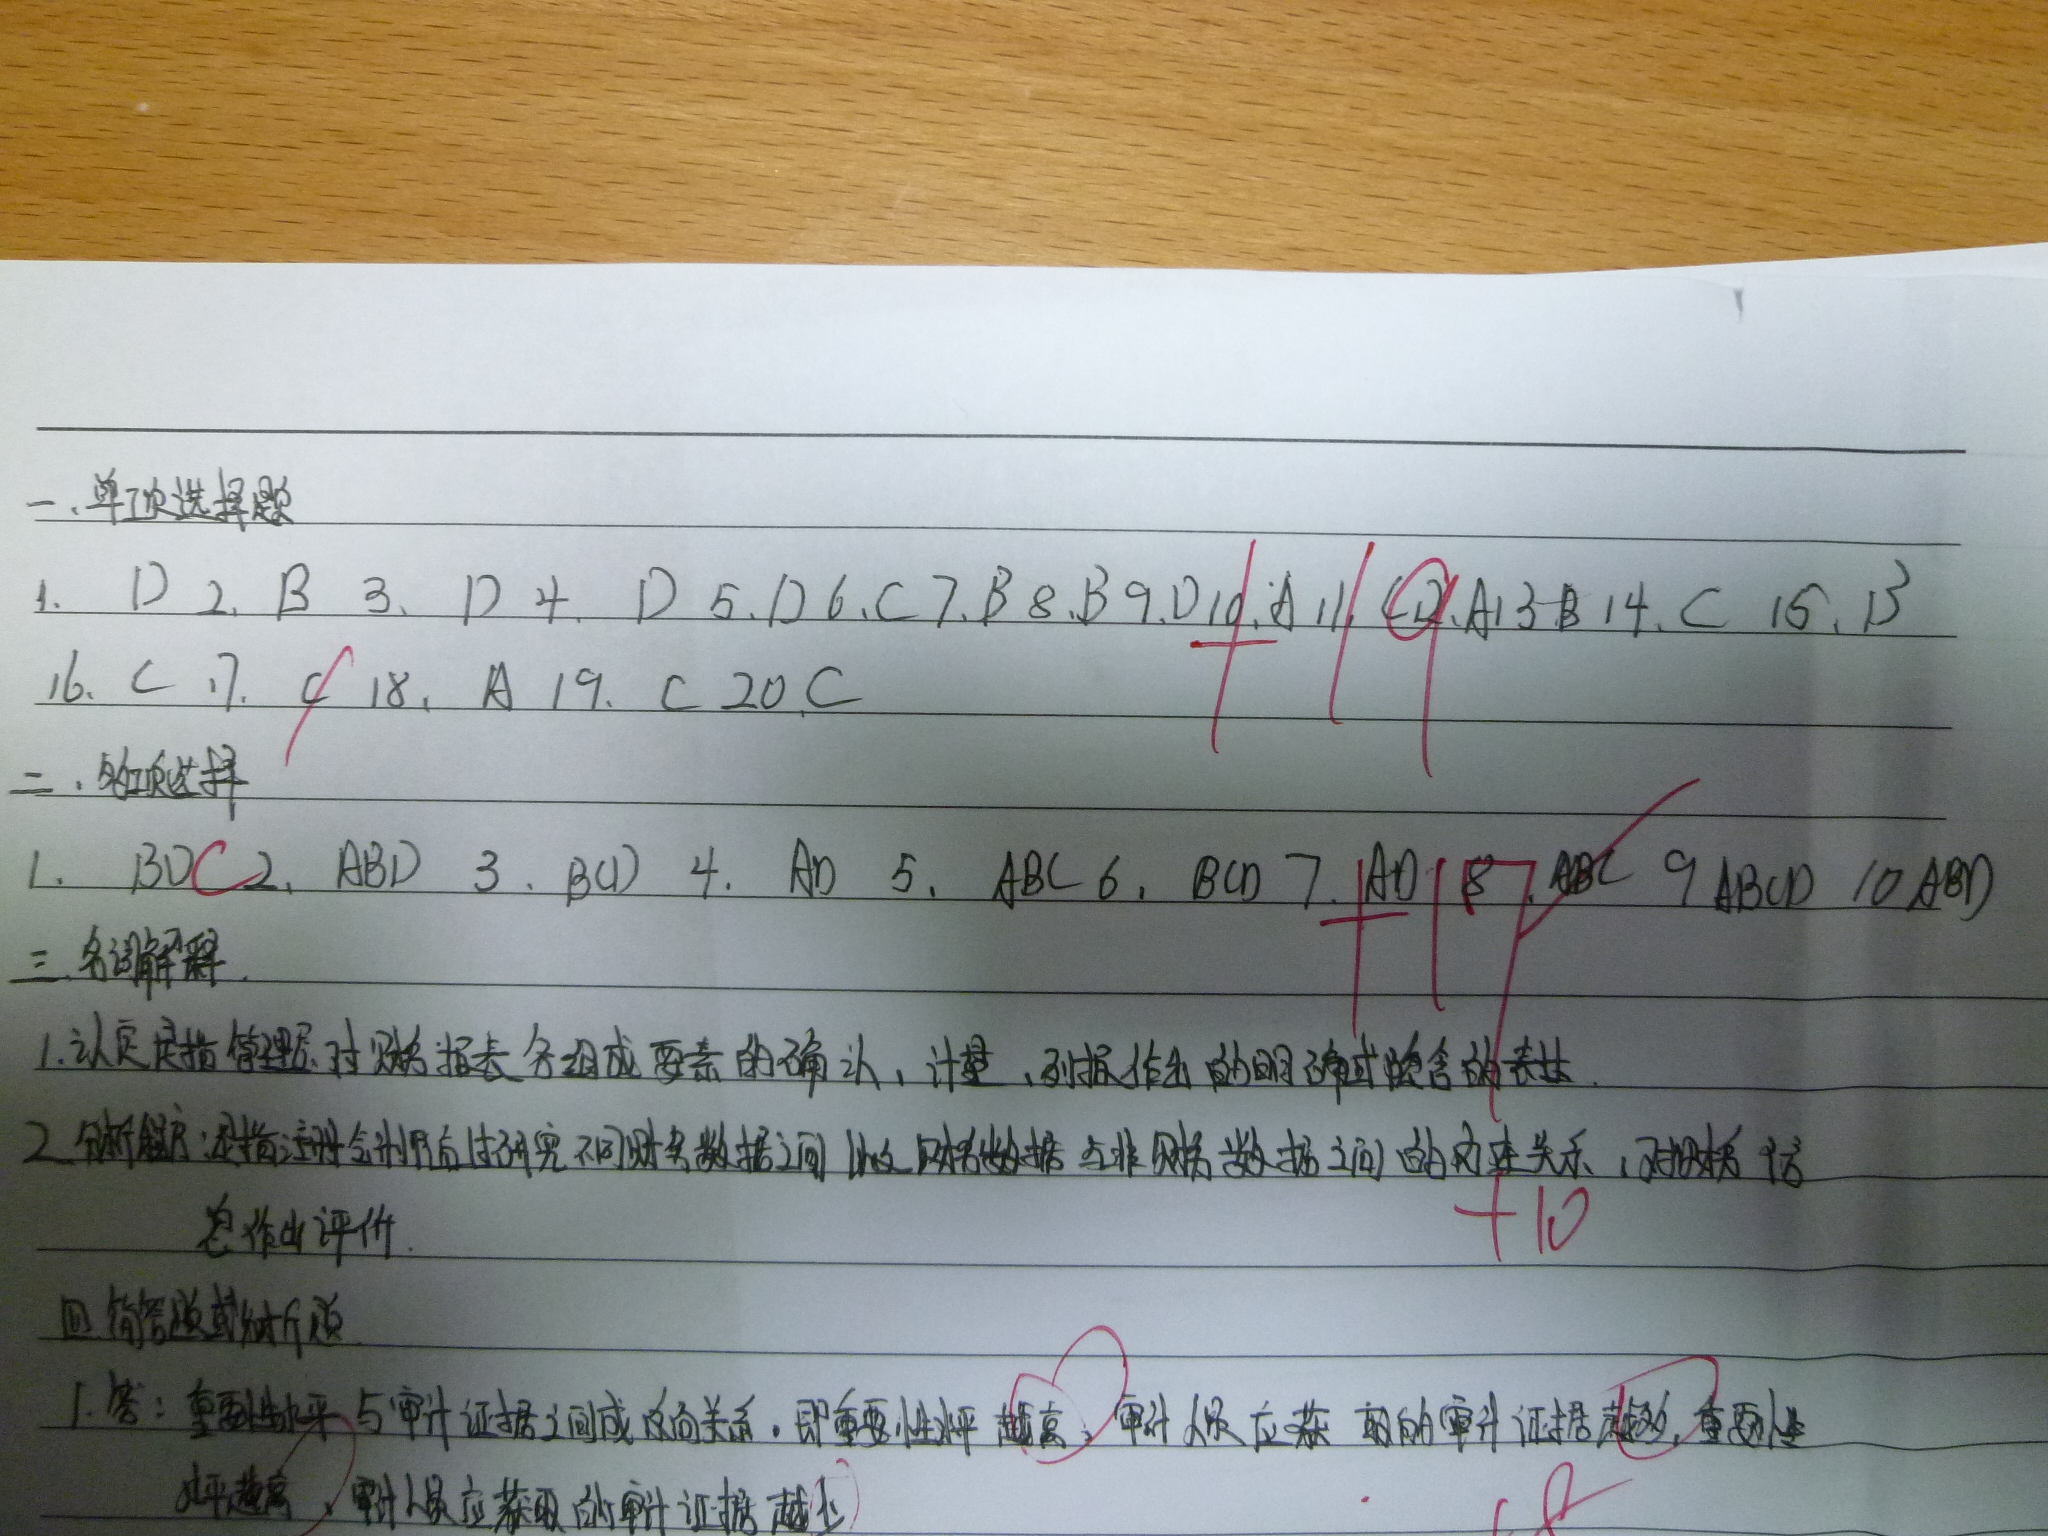 一、单项选择题
1. D 2. B 3. D 4. D 5. D 6. C 7. B 8. B 9. D 10. A 11. C 12. A 13. B 14. C 15. B
+19
16. C 17. C 18. A 19. C 20. C
二、多项选择
1. BDC 2. ABD 3. BCD 4. AD 5. ABC 6. BCD 7. AD 8. ABC 9 ABCD 10 ABD
+17
三.名词解释.
1.认定是指管理层对财务报表各组成要素的确认、计量、列报作出的明确或隐含的表达.
2.分析程序:是指注册会计师通过研究不同财务数据之间以及财务数据与非财务数据之间的内在关系,对财务信
+10
息作出评价.
四 简答题或分析题
1.答:重要性水平与审计证据之间成反向关系.即重要性水平越高,审计人员应获取的审计证据越多,重要性
水平越高,审计人员应获取的审计证据越少
+8